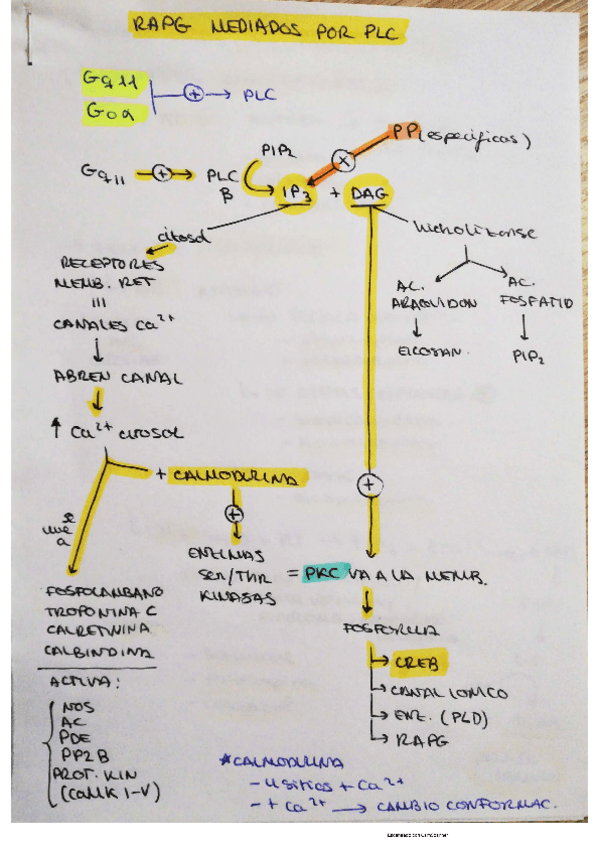 RAPG MEDIADOS POR PLC
Gq11
Goα
+ → PLC
PP (específicos)
Gq11 + → PLC B
PIP2
IP3 + DAG
citosol
metabolizarse
RECEPTORES
MEMB. RET
III
CANALES Ca2+
ABREN CANAL
AC.
ARAQUIDON
EICOSAN.
AC.
FOSFATID
PIP2
↑ Ca2+ citosol
+ CALMODULINA
+
+
se
une
a
ENZIMAS
Ser/THR = PKC VA A LA MEMB.
KINASAS
FOSFOLAMBANO
TROPONINA C
CALRETININA
CALBINDINA
FOSFORILA
CREB
CANAL IONICO
ENZ. (PLD)
RAPG
ACTIVA:
NOS
AC
PDE
PP2B
PROT. KIN
(CaMK I-V)
*CALMODULINA
- 4 sitios + Ca2+
- + Ca2+ → CAMBIO CONFORMAC.
Escaneado con CamScanner